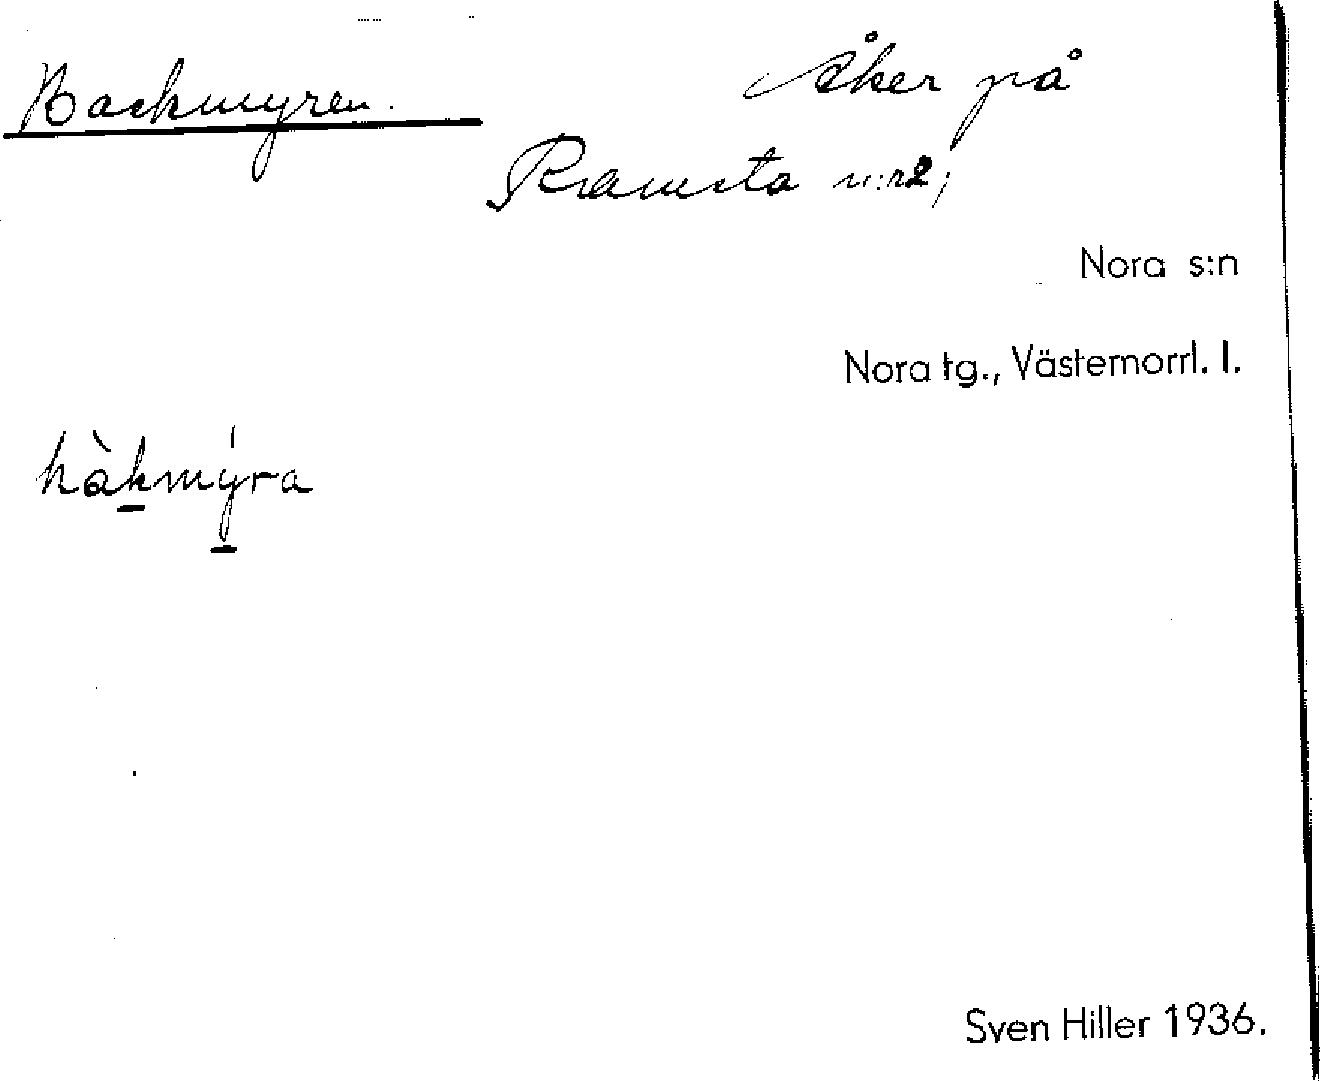 Backmyren.
Åker på
Ramsta n:r 2;
Nora s:n
Nora tg., Västernorrl. l.
bàkmýra
Sven Hiller 1936.